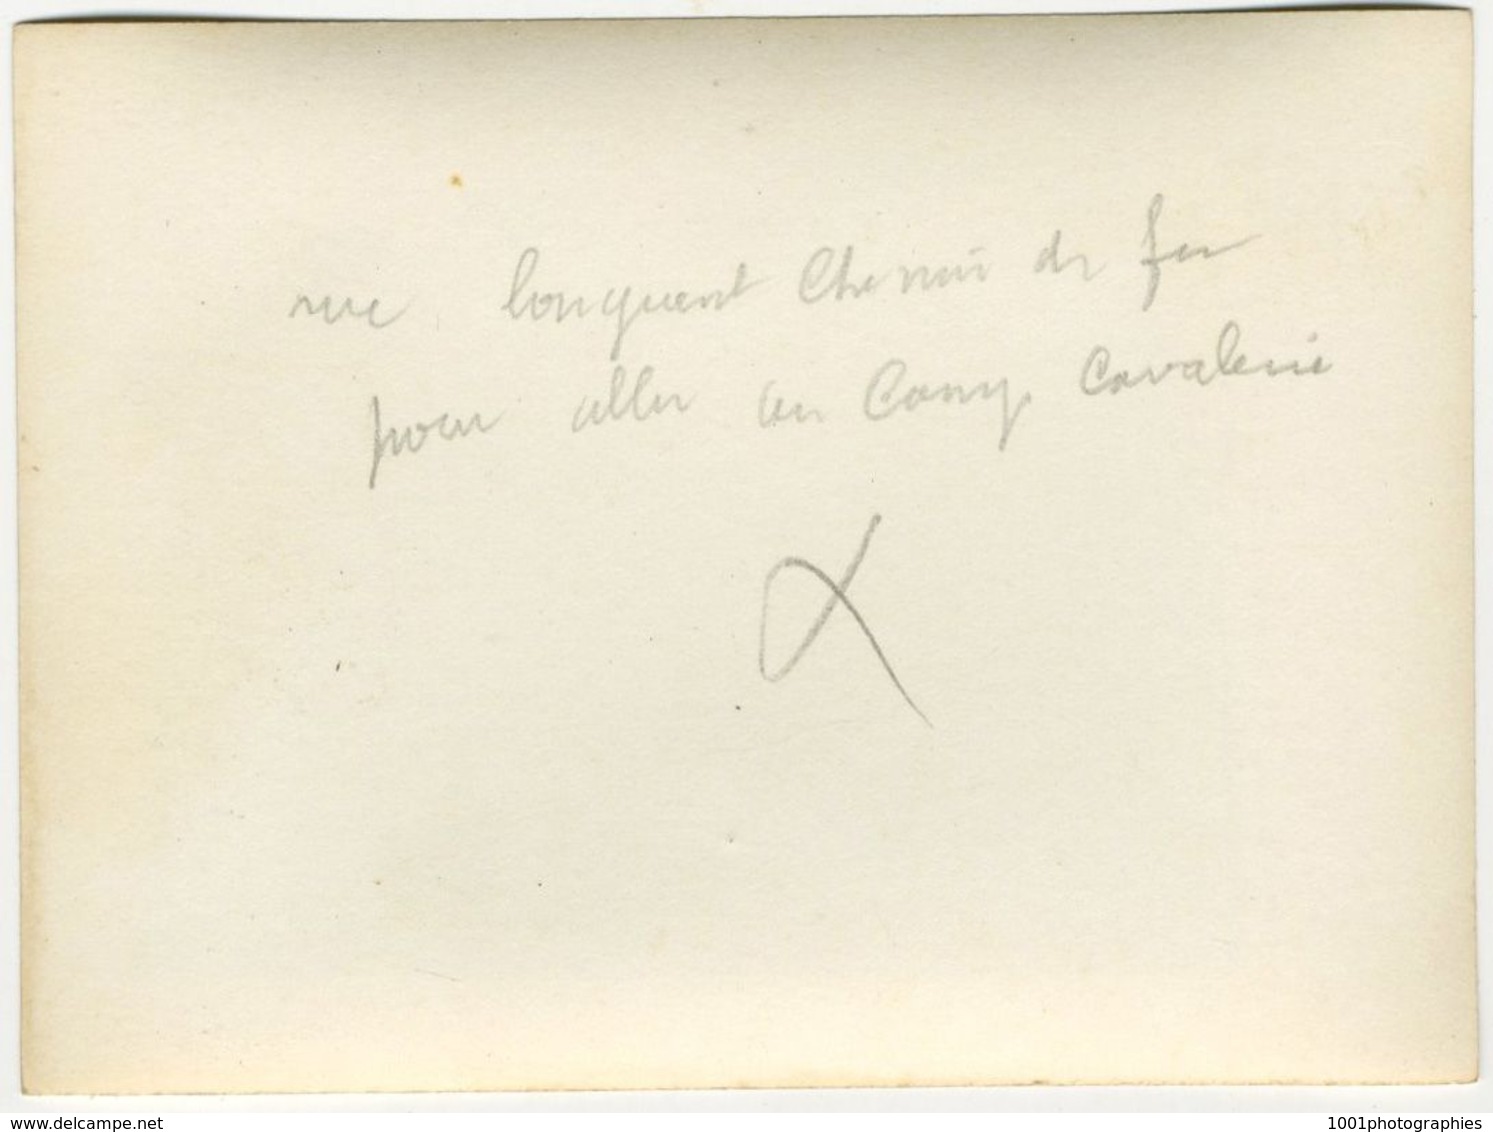 rue longuent Chemin de fer
pour aller au Camp Cavalerie
delcampe.net
1001photographies